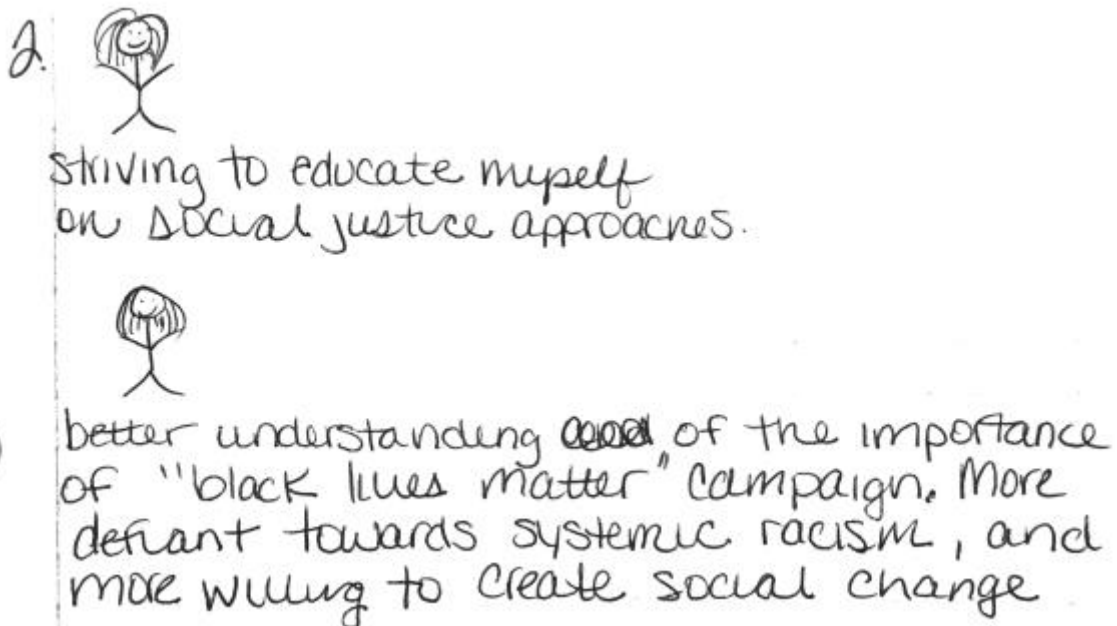 2.
striving to educate myself
on social justice approaches.
better understanding of the importance
of "black lives matter" campaign. More
defiant towards systemic racism, and
more willing to create social change